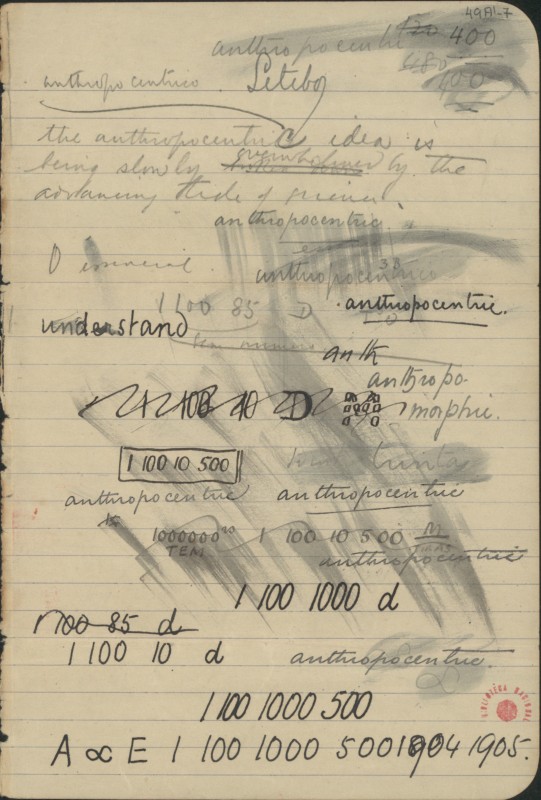 49A1-7
anthropocentric 120 400
anthropocentrico 480
Setebos 400
the anthropocentric idea is
being slowly by the
advancing tide of
anthropocentric
O
anthropocentrico
38
1100 85 D anthropocentric.
understand
anth
anthropo-
morphic.
1 100 10 D
1 100 10 500
anthropocentric anthropocentric
15
1000000 1 100 10 500 M
TEM
anthropocentric
1 100 1000 d
1100 85 d
1 100 10 d anthropocentric.
1 100 1000 500
BIBLIOTECA NACIONAL
A ∝ E 1 100 1000 500 1904 1905.